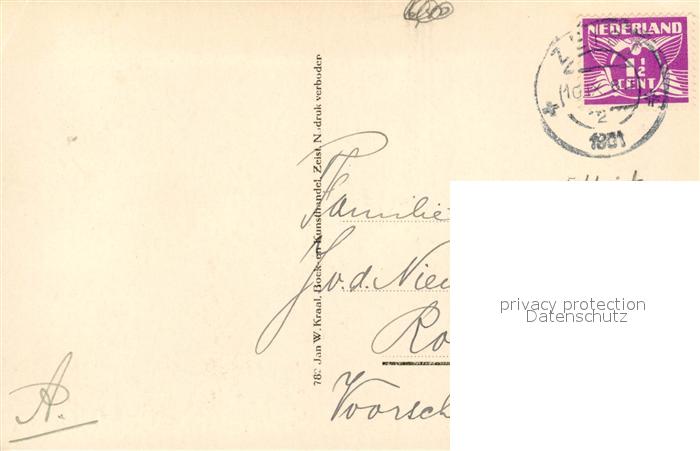 6,00
NEDERLAND
1½
CENT
1931
782 Jan W. Kraal, Boek- en Kunsthandel, Zeist, Nadruk verboden
Familie
J. v. d. Nieu
Ro
Voorsch
A.
privacy protection
Datenschutz